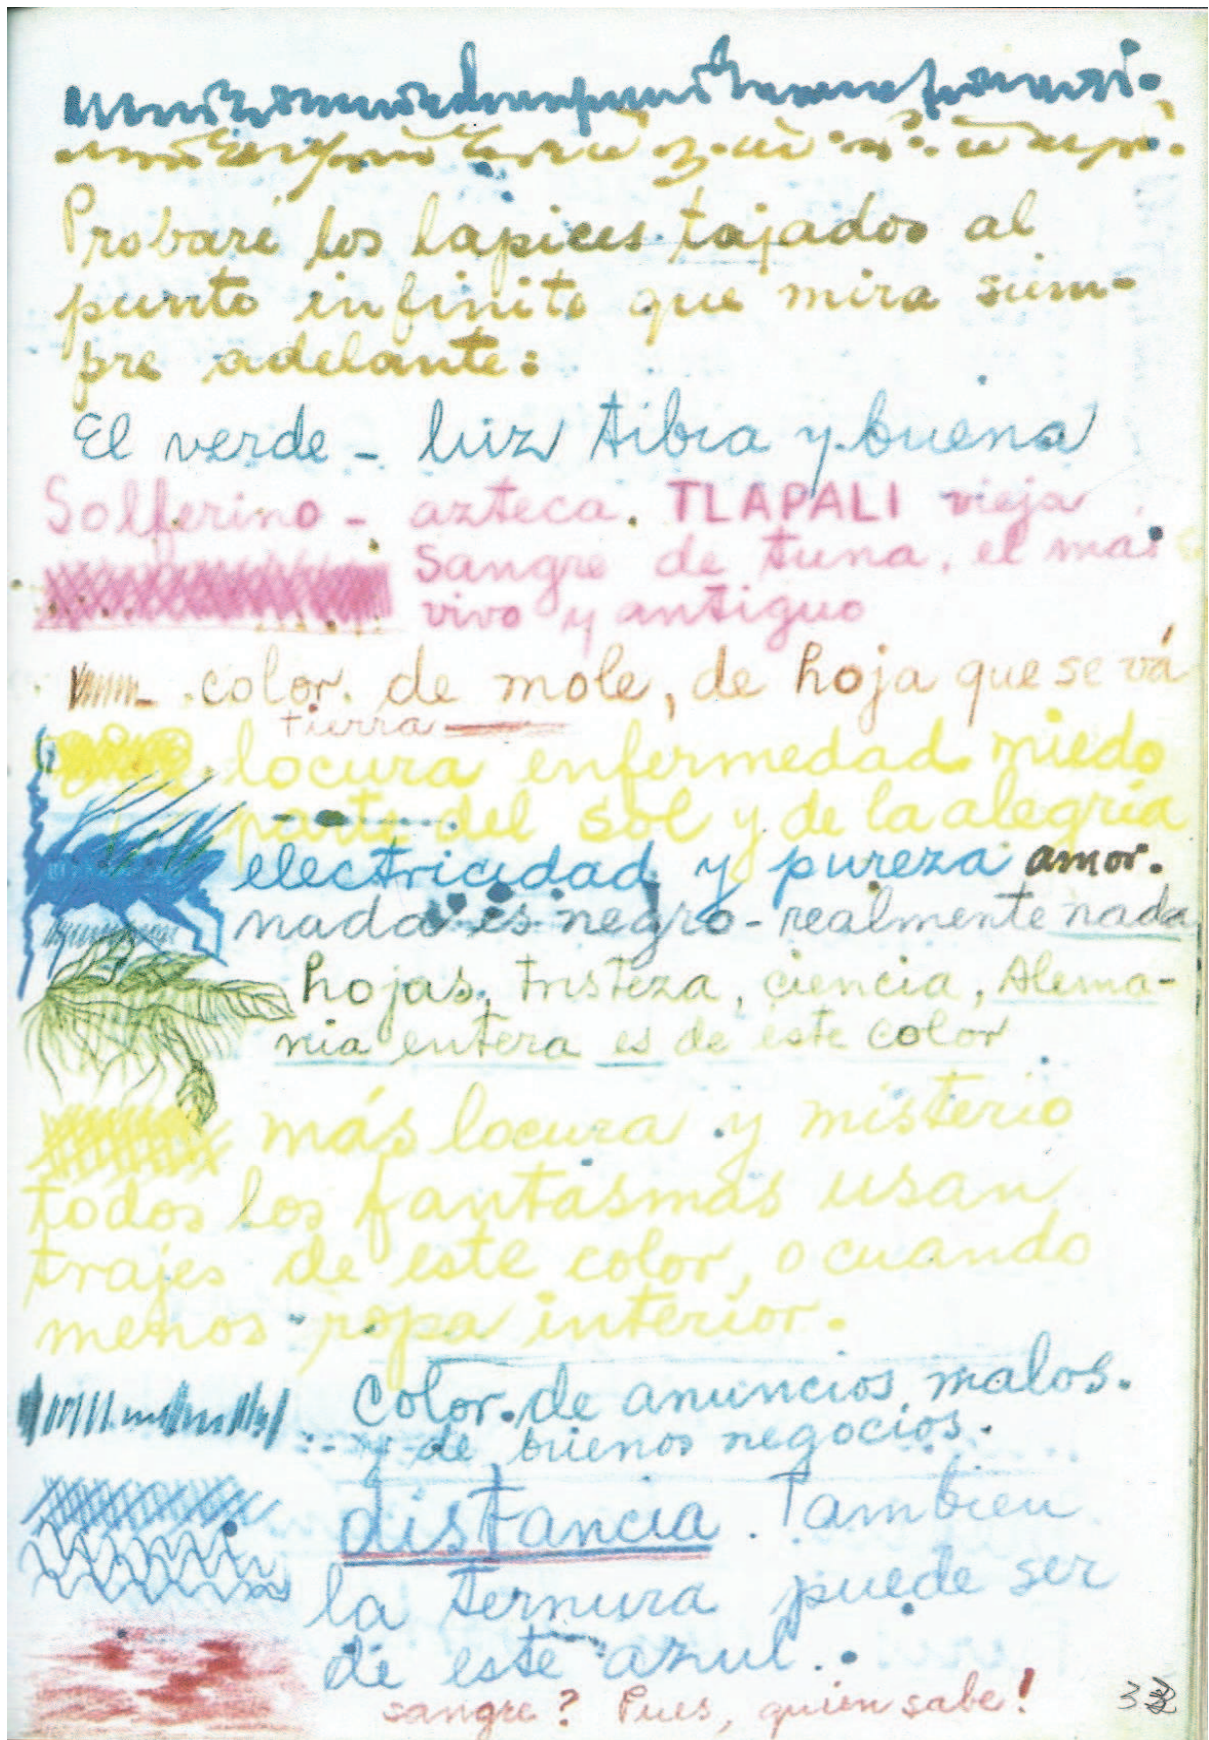 Probaré los lapices tajados al
punto infinito que mira siem-
pre adelante:
El verde - luz tibia y buena
Solferino - azteca. TLAPALI vieja
sangre de tuna, el mas
vivo y antiguo
color de mole, de hoja que se vá
tierra
locura enfermedad miedo
parte del sol y de la alegria
electricidad y pureza amor.
nada es negro - realmente nada
hojas, tristeza, ciencia, Alema-
nia entera es de este color
más locura y misterio
todos los fantasmas usan
trajes de este color, o cuando
menos ropa interior.
Color de anuncios malos.
y de buenos negocios.
distancia. Tambien
la ternura puede ser
de este azul.
sangre? Pues, quien sabe!